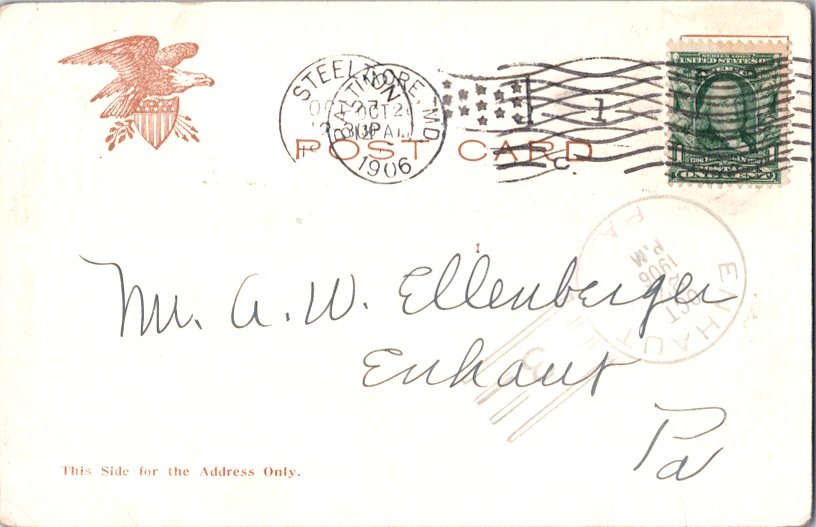 STEELTON
BALTIMORE, MD
OCT 2
1906
1
C.
POST CARD
SERIES 1902
UNITED STATES OF
ENHAUT
PA
OCT
1906
P.M
Mr. A. W. Ellenberger
Enhaut
Pa
This Side for the Address Only.